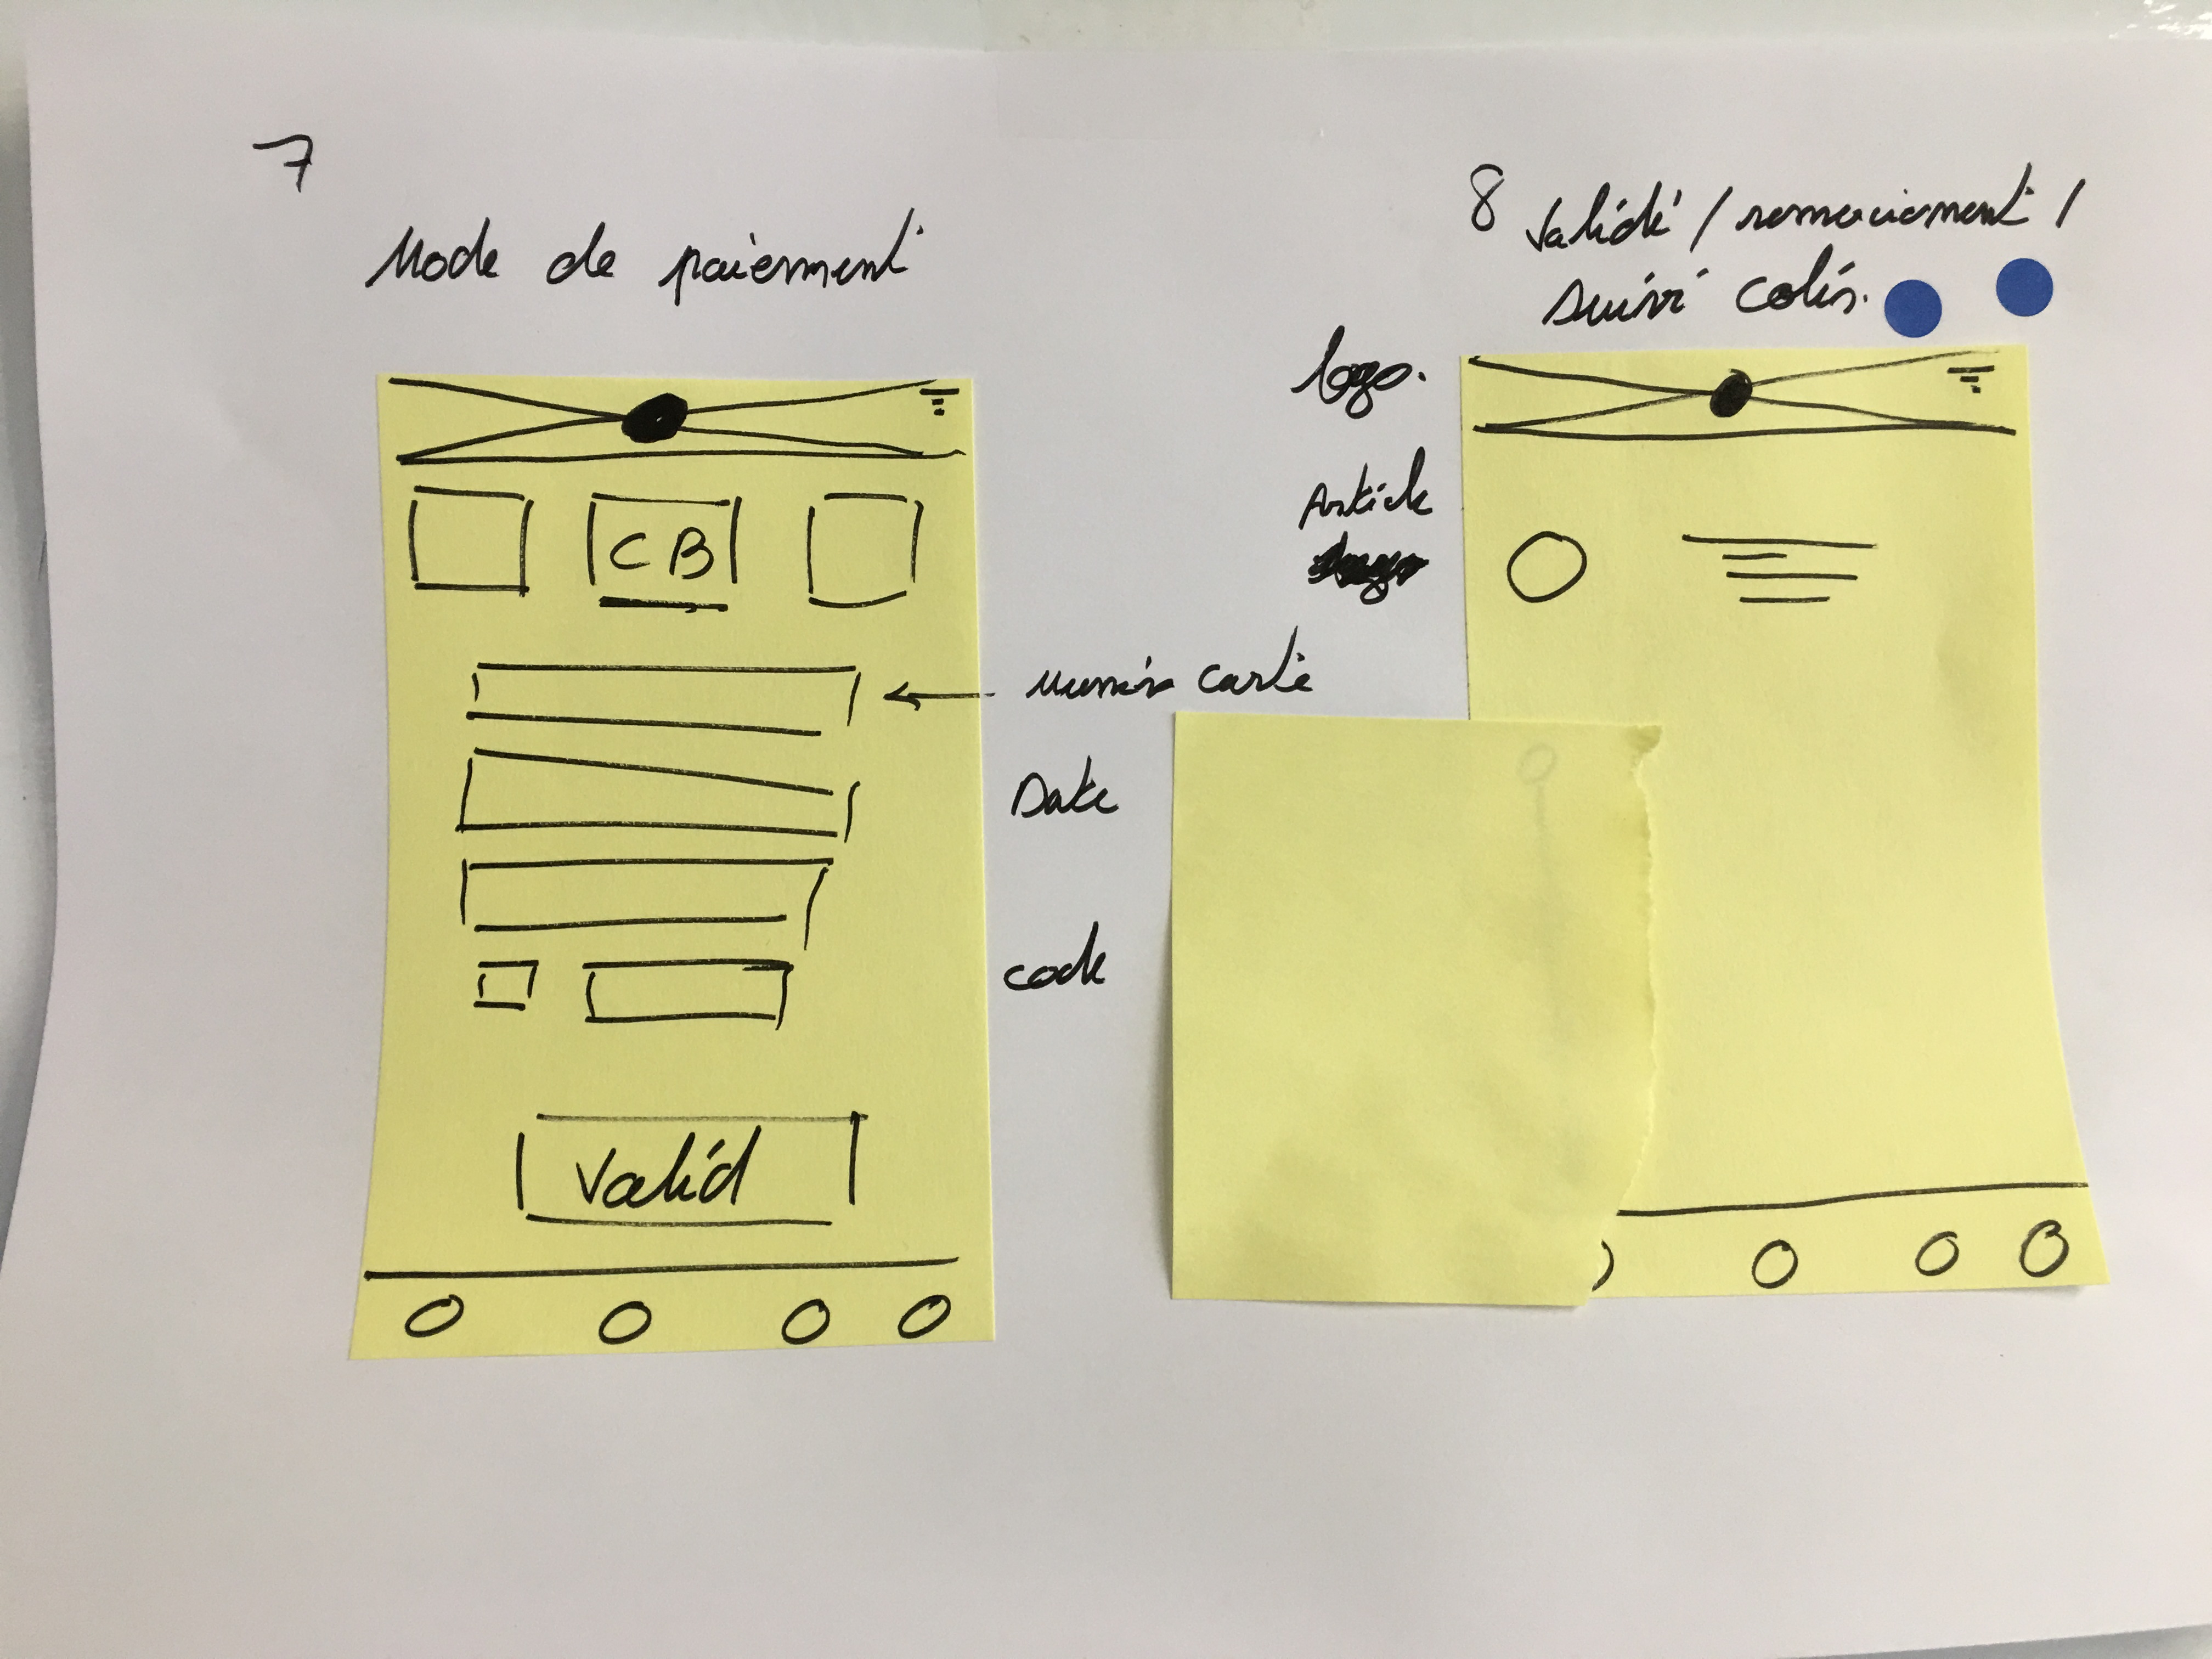 7
Mode de paiement
CB
Numéro carte
Date
code
Valid
8 Validé / remerciement /
Suivi Colis.
logo.
Article